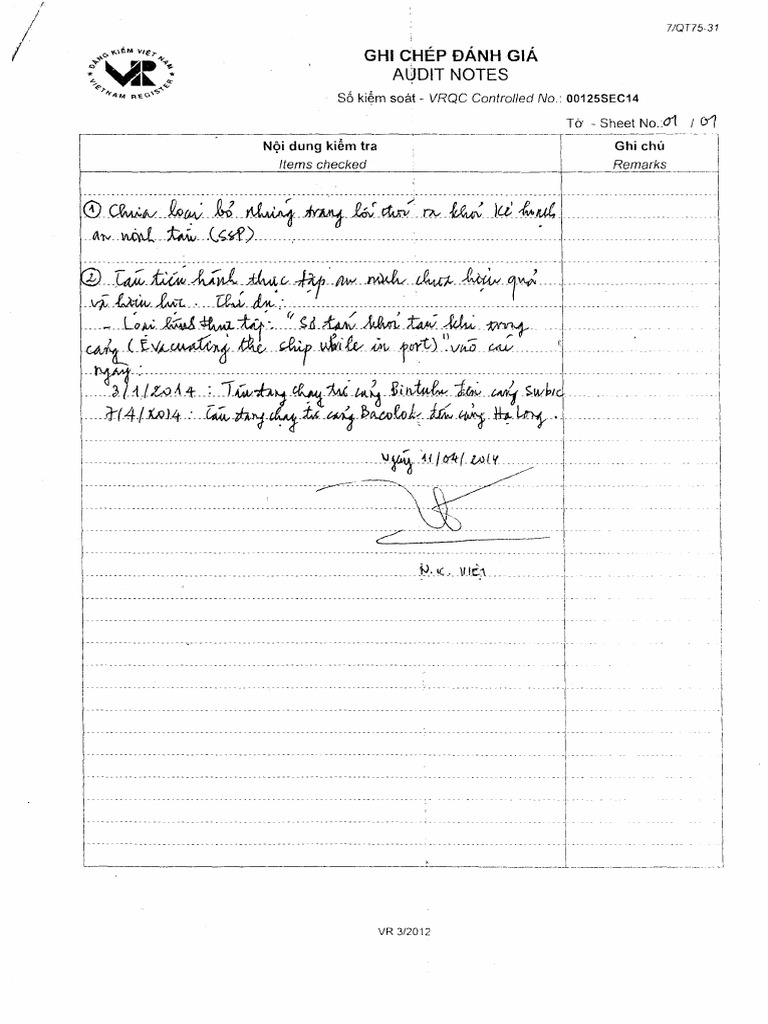 7/QT75-31
ĐĂNG KIỂM VIỆT NAM
VR
VIETNAM REGISTER
GHI CHÉP ĐÁNH GIÁ
AUDIT NOTES
Số kiểm soát - VRQC Controlled No.: 00125SEC14
Tờ - Sheet No.: 01 / 01
Nội dung kiểm tra
Items checked
Ghi chú
Remarks
① Chưa loại bỏ những trang lỗi thời ra khỏi Kế hoạch
an ninh tàu (SSP)
② Tàu tiến hành thực tập an ninh chưa hiệu quả
và hiệu lực. Thí dụ:
- Loại hình thực tập: "Sơ tán khỏi tàu khi trong
cảng (Evacuating the ship while in port)" vào các
ngày:
3/1/2014 : Tàu đang chạy từ cảng Bintulu đến cảng Subic
7/4/2014 : Tàu đang chạy từ cảng Bacolok đến cảng Hạ Long.
Ngày 11/04/2014
N.K. VIỆT
VR 3/2012